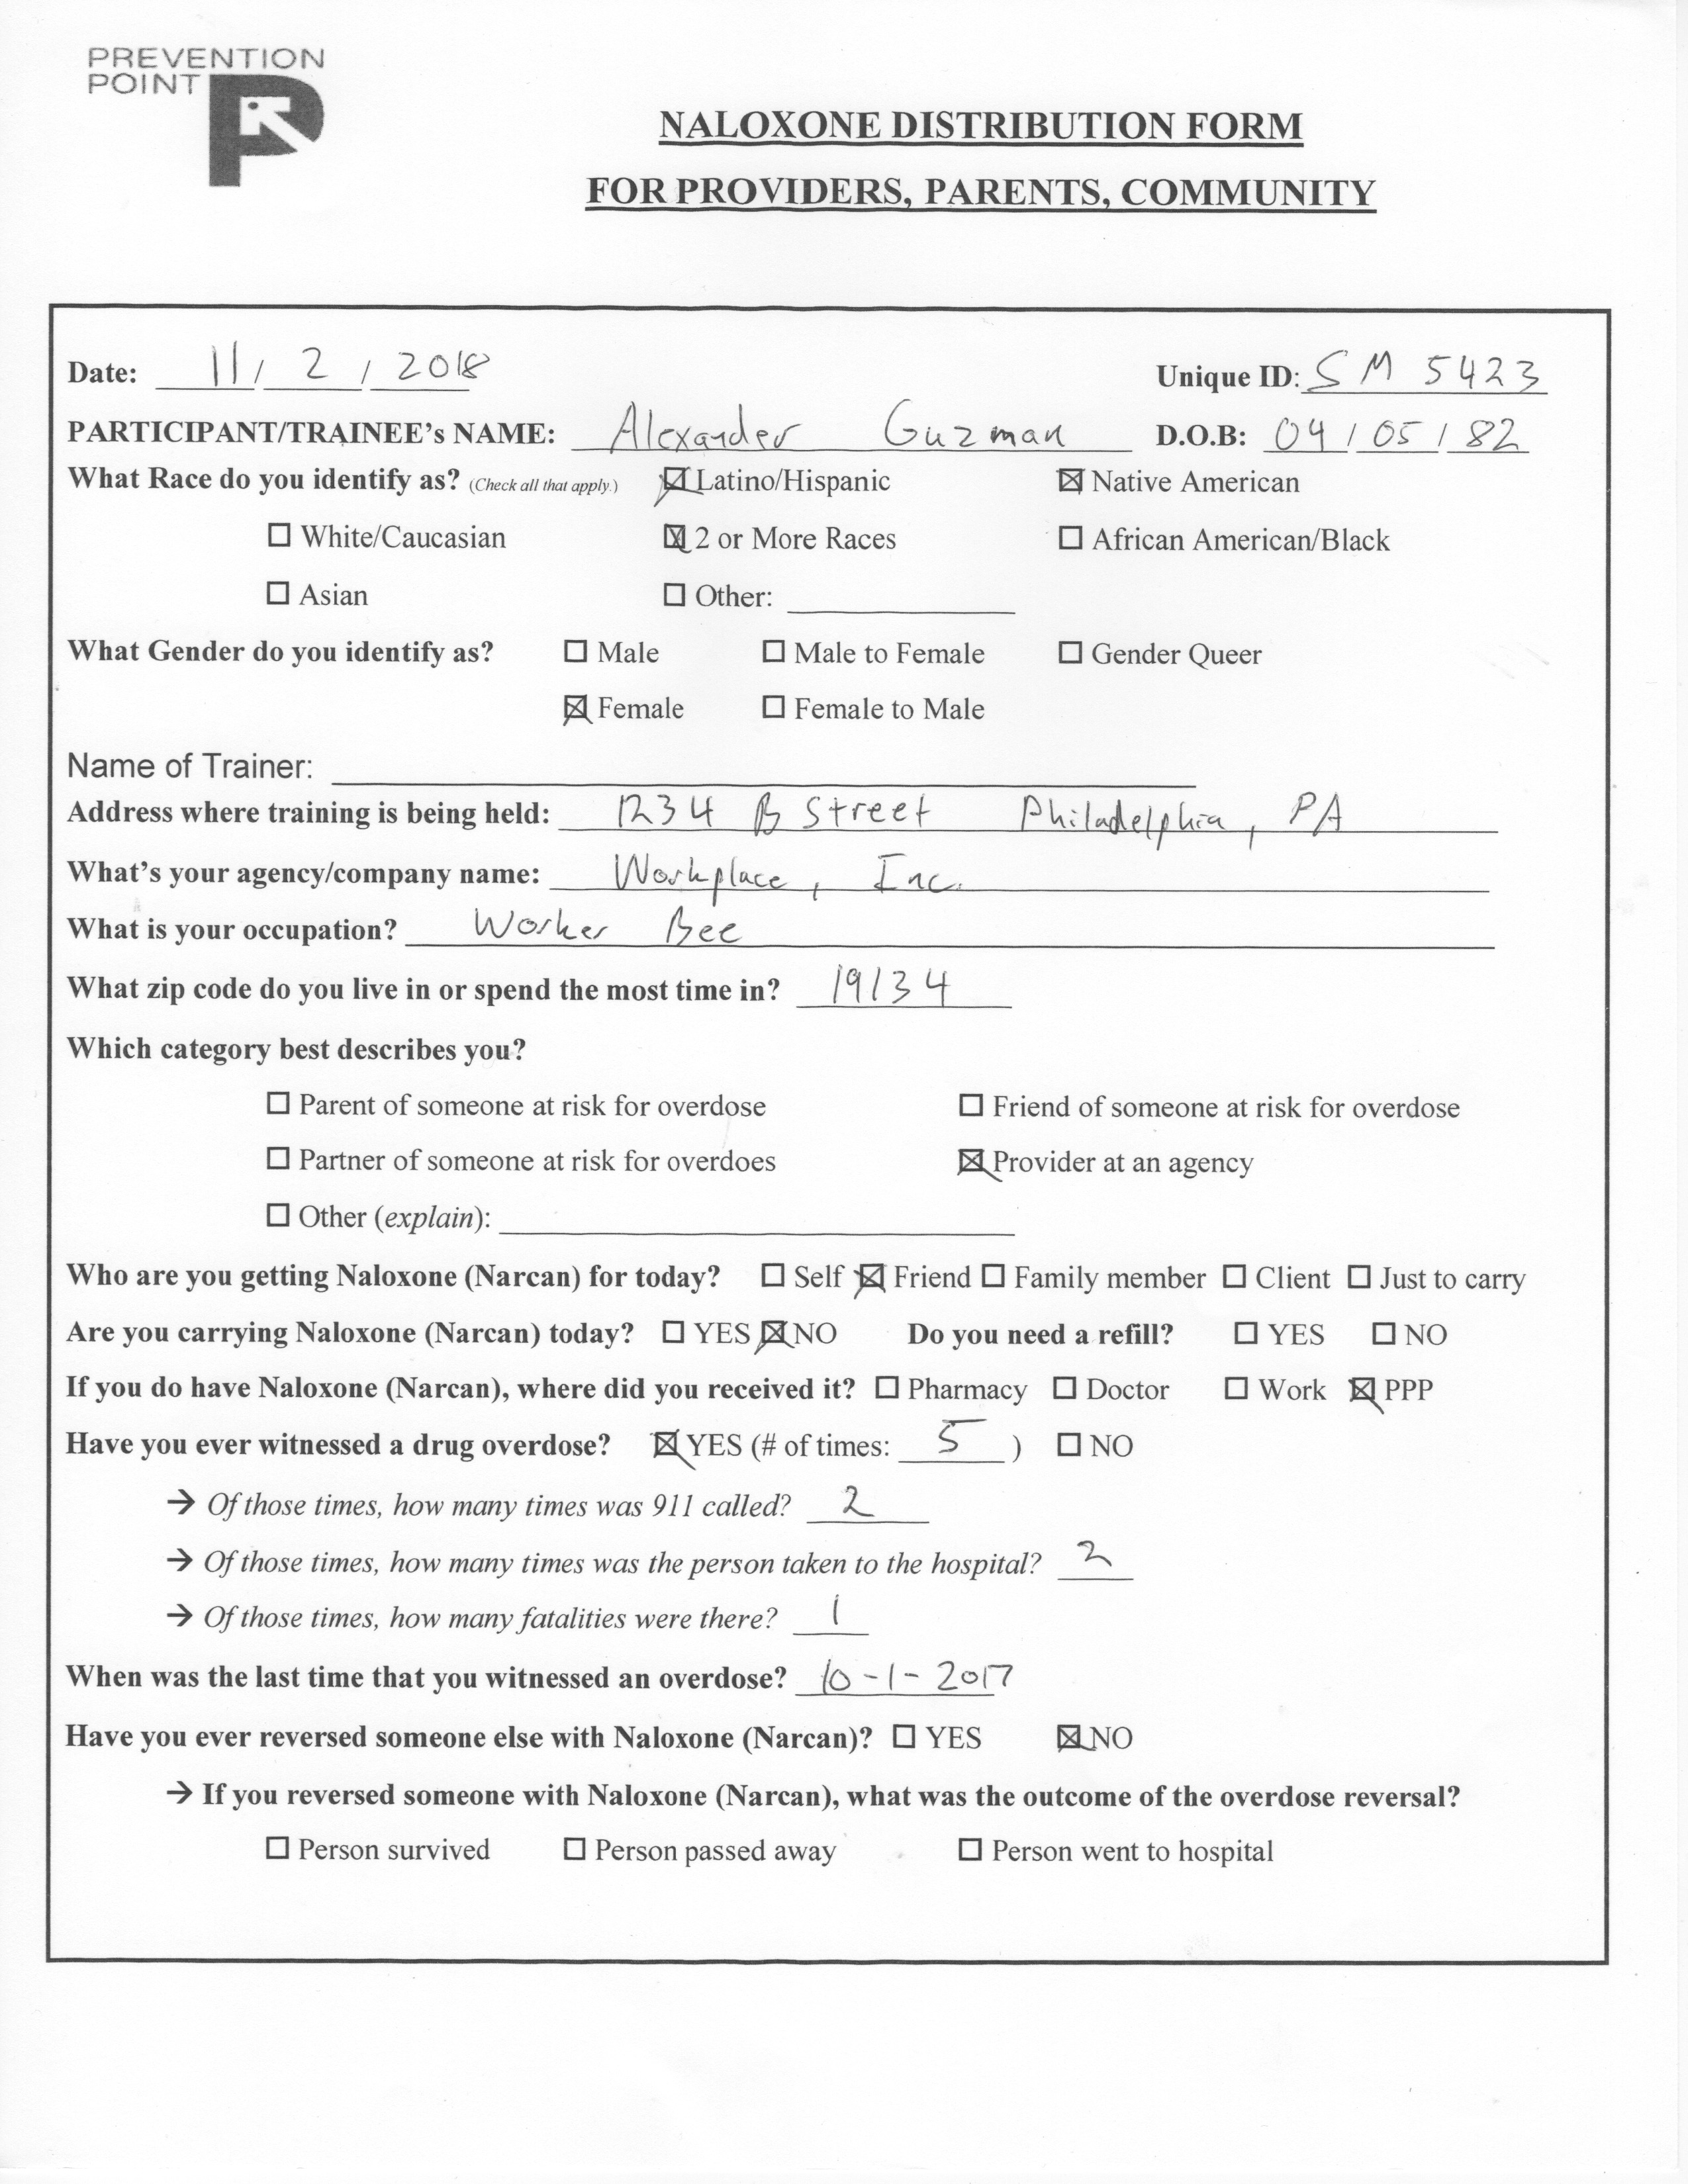 PREVENTION
POINT
NALOXONE DISTRIBUTION FORM
FOR PROVIDERS, PARENTS, COMMUNITY
Date: 11 / 2 / 2018 Unique ID: SM 5423
PARTICIPANT/TRAINEE's NAME: Alexander Guzman D.O.B: 04 / 05 / 82
What Race do you identify as? (Check all that apply.) ☒ Latino/Hispanic ☒ Native American
☐ White/Caucasian ☒ 2 or More Races ☐ African American/Black
☐ Asian ☐ Other:
What Gender do you identify as? ☐ Male ☐ Male to Female ☐ Gender Queer
☒ Female ☐ Female to Male
Name of Trainer:
Address where training is being held: 1234 B Street Philadelphia, PA
What's your agency/company name: Workplace, Inc.
What is your occupation? Worker Bee
What zip code do you live in or spend the most time in? 19134
Which category best describes you?
☐ Parent of someone at risk for overdose ☐ Friend of someone at risk for overdose
☐ Partner of someone at risk for overdoes ☒ Provider at an agency
☐ Other (explain):
Who are you getting Naloxone (Narcan) for today? ☐ Self ☒ Friend ☐ Family member ☐ Client ☐ Just to carry
Are you carrying Naloxone (Narcan) today? ☐ YES ☒ NO Do you need a refill? ☐ YES ☐ NO
If you do have Naloxone (Narcan), where did you received it? ☐ Pharmacy ☐ Doctor ☐ Work ☒ PPP
Have you ever witnessed a drug overdose? ☒ YES (# of times: 5 ) ☐ NO
→ Of those times, how many times was 911 called? 2
→ Of those times, how many times was the person taken to the hospital? 2
→ Of those times, how many fatalities were there? 1
When was the last time that you witnessed an overdose? 10-1-2017
Have you ever reversed someone else with Naloxone (Narcan)? ☐ YES ☒ NO
→ If you reversed someone with Naloxone (Narcan), what was the outcome of the overdose reversal?
☐ Person survived ☐ Person passed away ☐ Person went to hospital